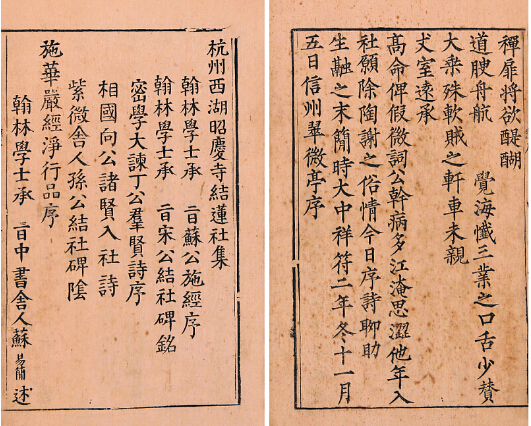 禪扉将欲醍醐
道腴舟航　覺海懺三業之口舌少賛
大乗殊軟賊之軒車未親
丈室遠承
髙命俾假微詞公幹病多江淹思澀他年入
社願除陶謝之俗情今日序詩聊助
生融之末簡時大中祥符二年冬十一月
五日信州翠微亭序
杭州西湖昭慶寺結蓮社集
翰林學士承　㫖蘇公施經序
翰林學士承　㫖宋公結社碑銘
密學大諫丁公羣賢詩序
相國向公諸賢入社詩
紫微舎人孫公結社碑隂
施華嚴經淨行品序
翰林學士承　㫖中書舎人蘇易簡述